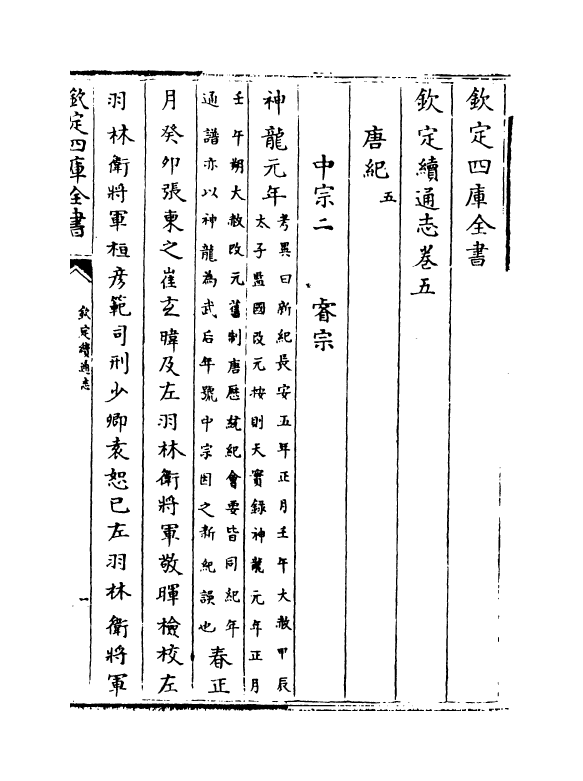 欽定四庫全書
欽定續通志卷五
唐紀五
中宗二　睿宗
神龍元年
考異曰新紀長安五年正月壬午大赦甲辰
太子監國改元按則天實錄神龍元年正月
壬午朔大赦改元舊制唐歷統紀會要皆同紀年
通譜亦以神龍為武后年號中宗因之新紀誤也
春正
月癸卯張東之崔玄暐及左羽林衛將軍敬暉檢校左
羽林衛將軍桓彥範司刑少卿袁恕已左羽林衛將軍
欽定四庫全書
欽定續通志
一